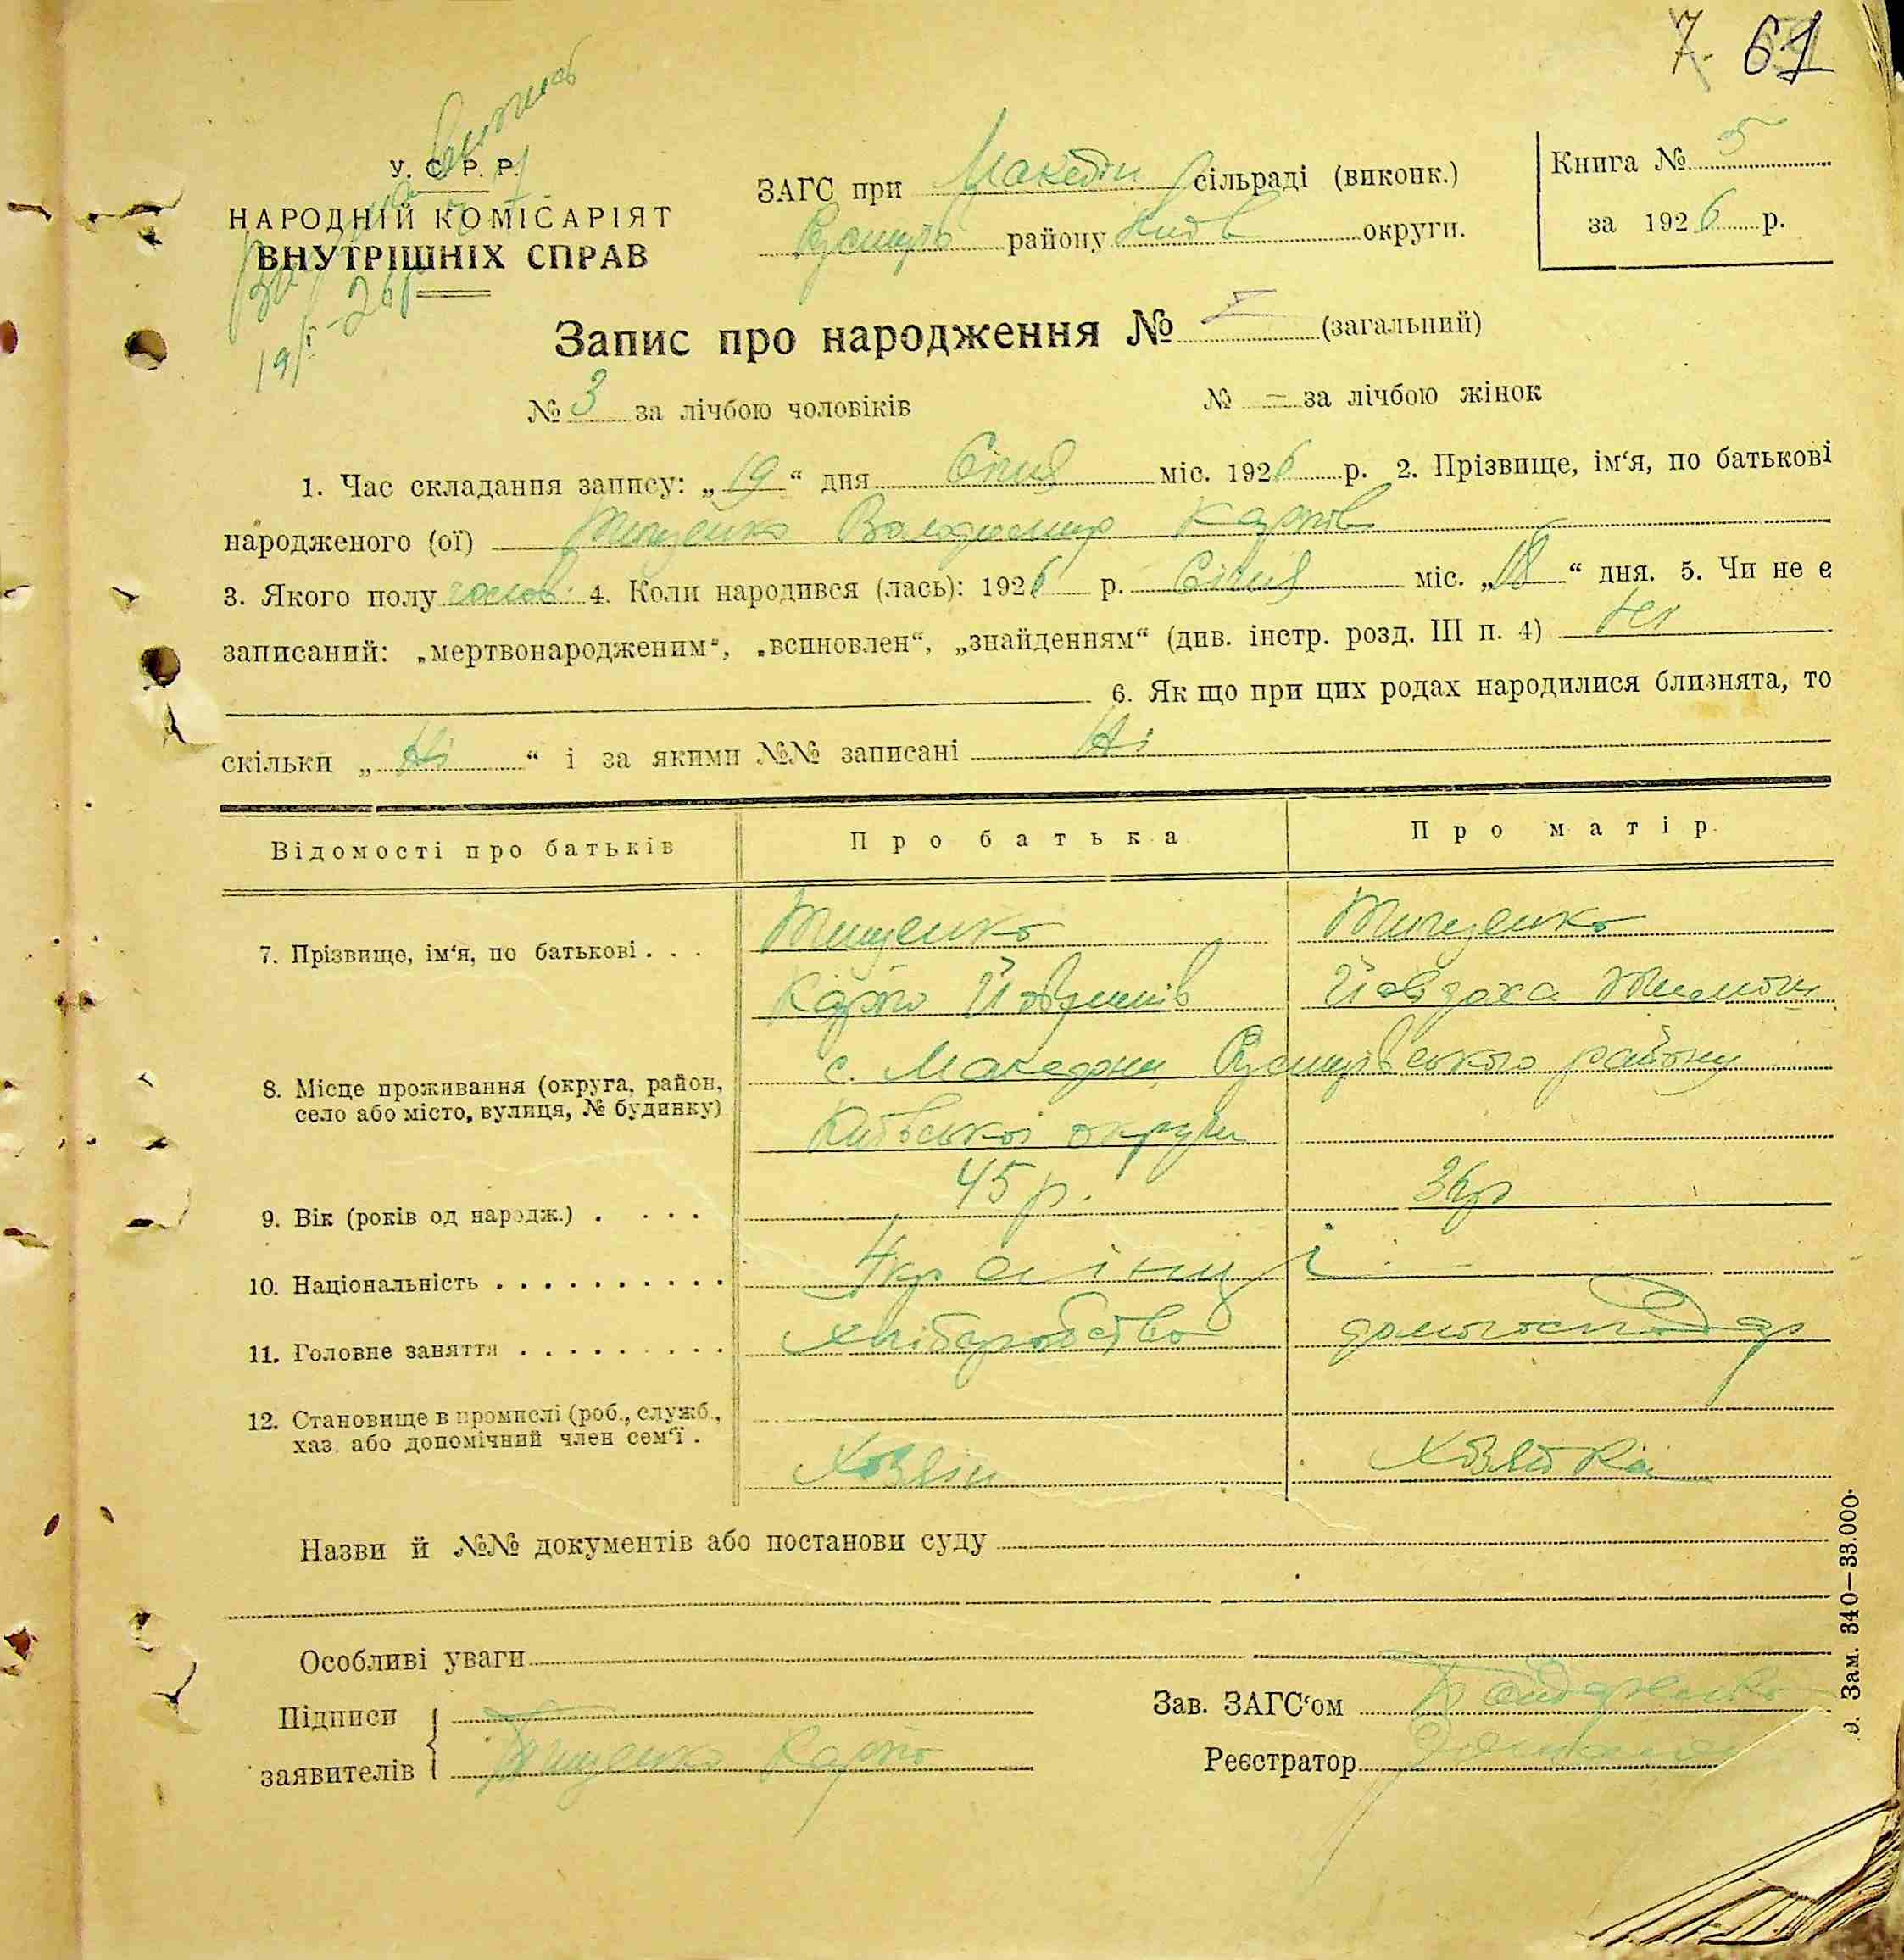 7. 61
У. С. Р. Р.
НАРОДНІЙ КОМІСАРІЯТ
ВНУТРІШНІХ СПРАВ
19/I-26р
ЗАГС при Македон сільраді (виконк.)
району Київ округи.
Книга № 5
за 1926 р.
Запис про народження № (загальний)
№ 3 за лічбою чоловіків
№ – за лічбою жінок
1. Час складання запису: „19“ дня Січня міс. 1926 р. 2. Прізвище, ім‘я, по батькові
народженого (ої) Тищенко Володимир Карпів
3. Якого полу чолов. 4. Коли народився (лась): 1926 р. Січня міс. „18“ дня. 5. Чи не є
записаний: „мертвонародженим“, „всиновлен“, „знайденням“ (див. інстр. розд. III п. 4) Ні
6. Як що при цих родах народилися близнята, то
скільки „Ні“ і за якими №№ записані Ні
Відомості про батьків
Про батька
Про матір
7. Прізвище, ім‘я, по батькові . . .
Тищенко
Тищенко
Карпо
Йавдоха Тимош
8. Місце проживання (округа, район,
село або місто, вулиця, № будинку)
с. Македони Ржищівського району
Київської округи
9. Вік (років од народж.) . . . .
45 р.
10. Національність . . . . . . . . . .
Українці
11. Головне заняття . . . . . . . . .
хліборобство
домогосподар
12. Становище в промислі (роб., служб.,
хаз. або допомічний член сем‘ї .
Хозяін
Хозяйка
Назви й №№ документів або постанови суду
Особливі уваги
Підписи
заявителів
Тищенко Карпо
Зав. ЗАГС‘ом Бондаренко
Реєстратор
Зам. 340—33.000.